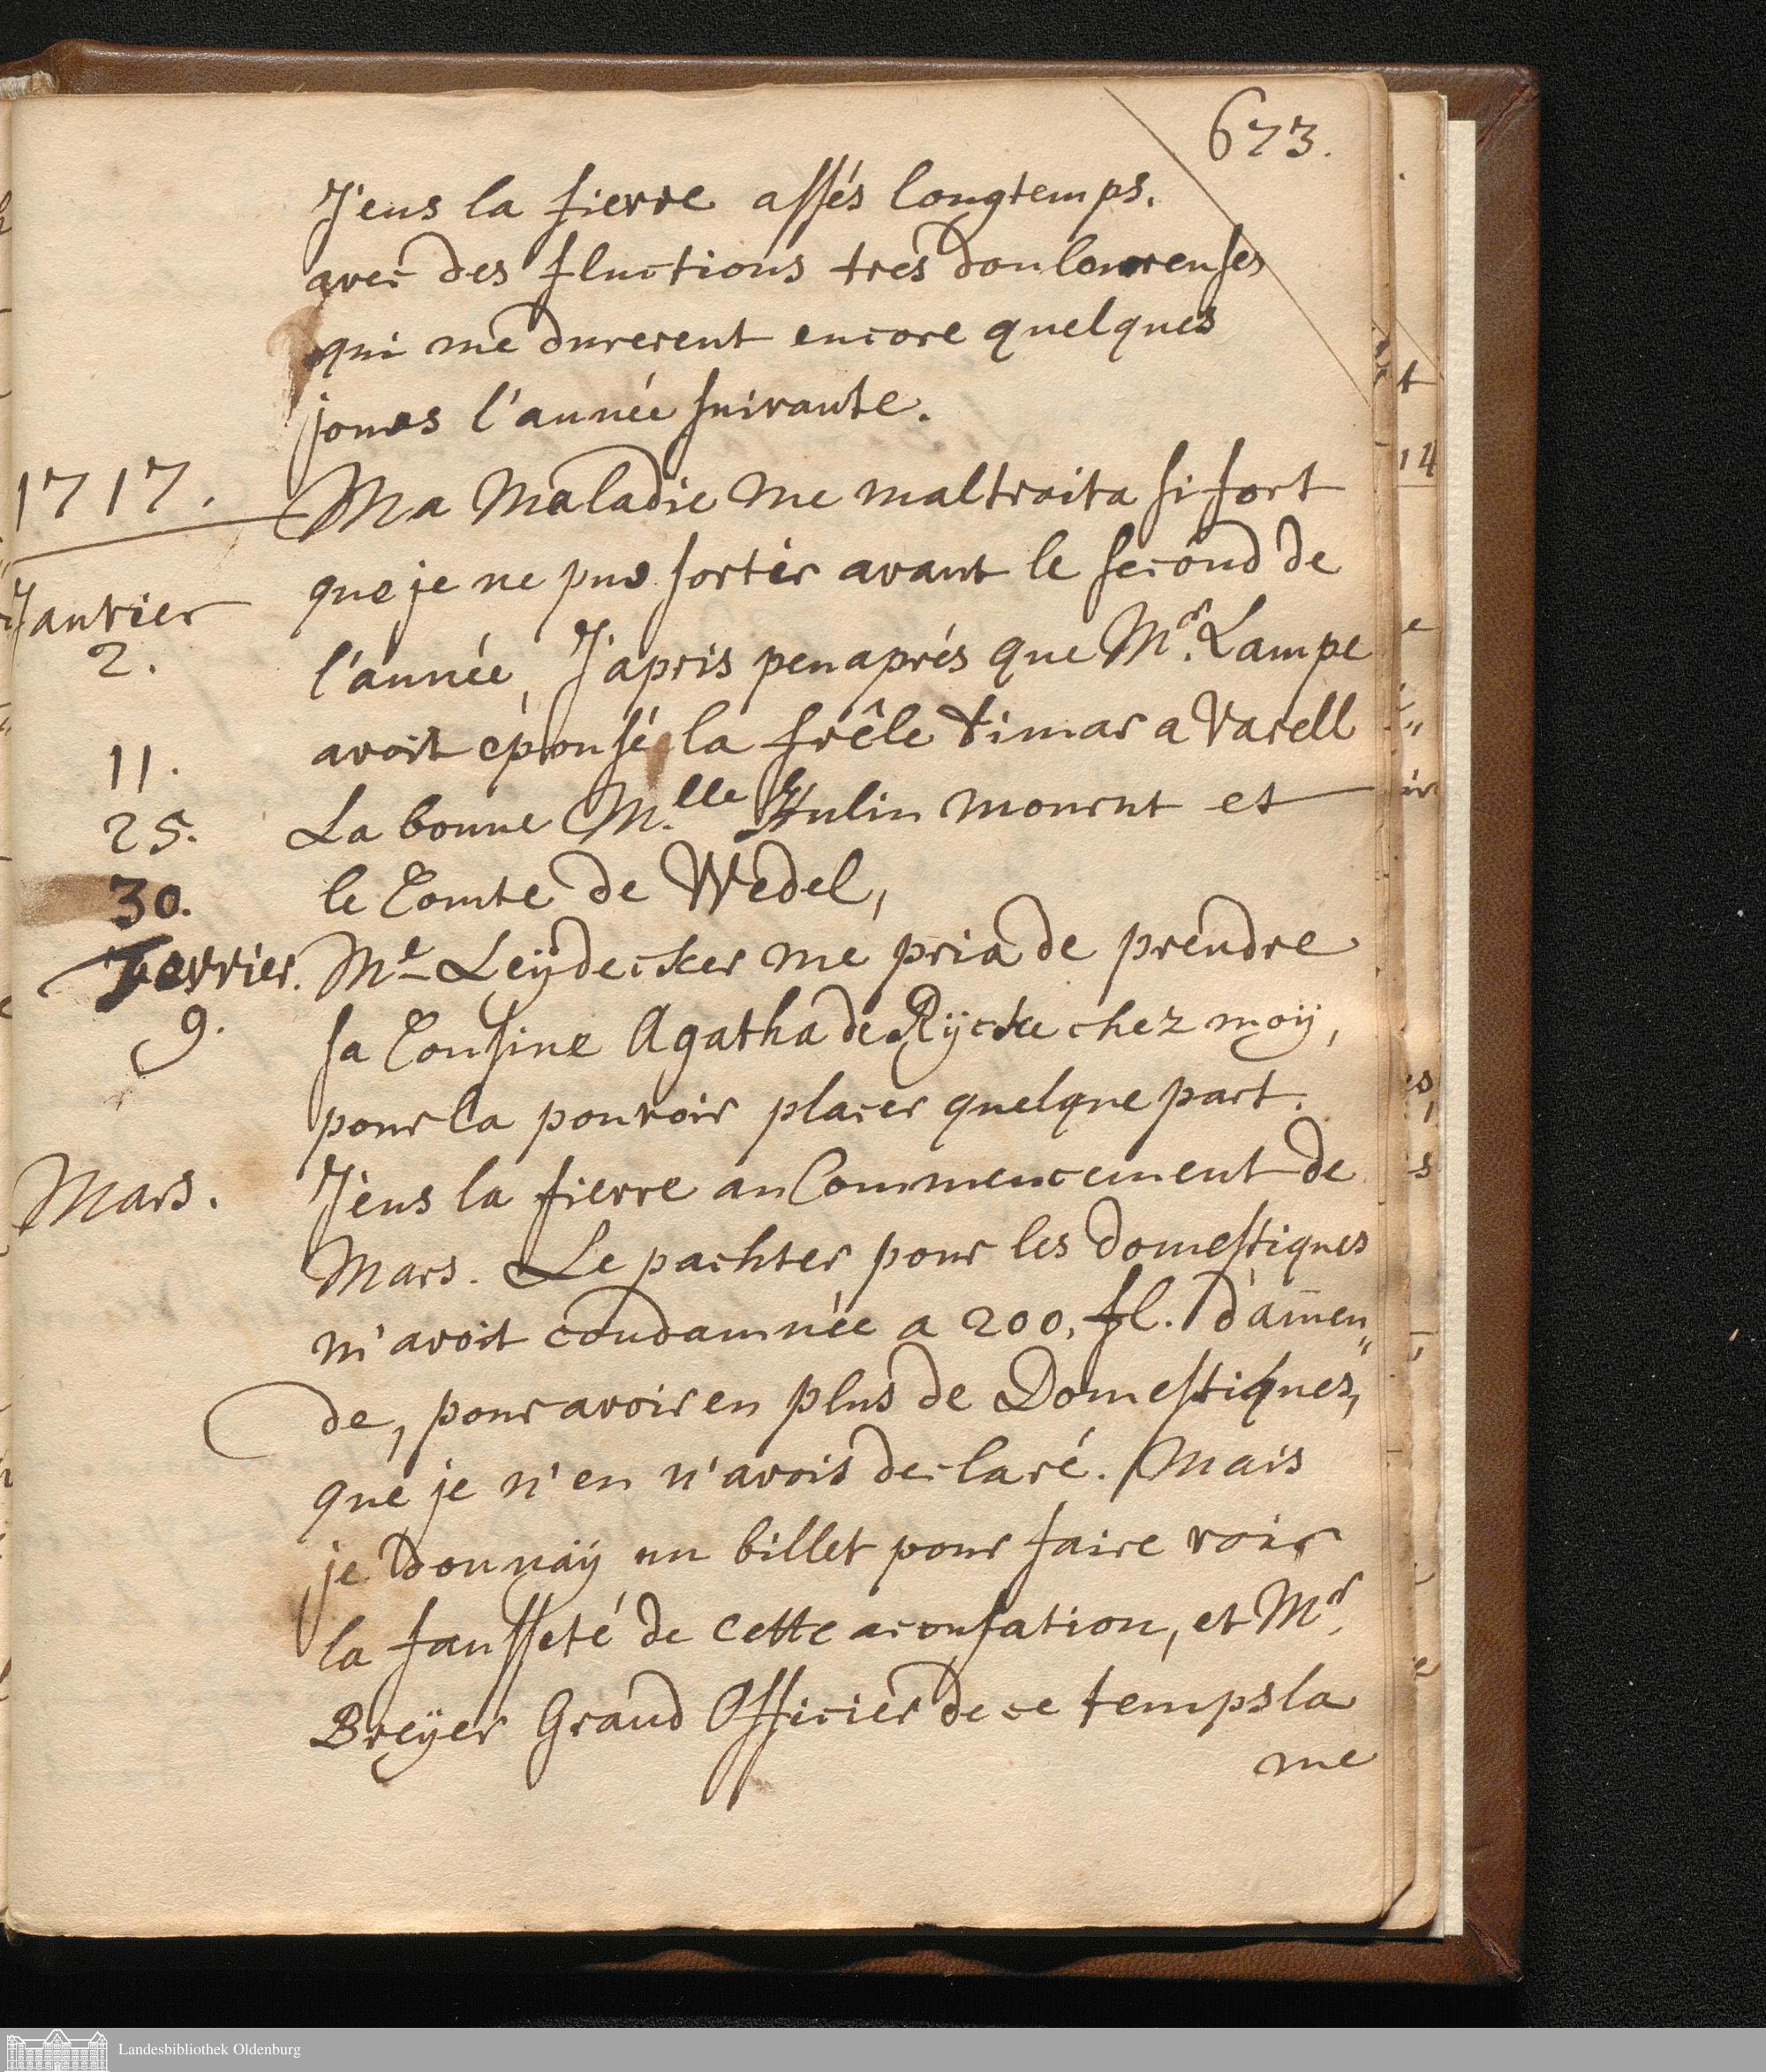 673.
J'eus la fievre assés longtemps.
avec des fluctions tres douloureuses
qui me durerent encore quelques
jours l'année suivante.
1717. Ma Maladie me maltraita si fort
que je ne pus sortir avant le second de
Janvier
2. l'année, J'apris peu aprés que Mr. Lampe
11. avoit épousé la frêle Timar a Varell
25. La bonne M.lle Hulin mourut et
30. le Comte de Wedel,
Fevrier. Me Leÿdecker me pria de prendre
9. sa Cousine Agatha de Rÿcke chez moÿ,
pour la pouvoir placer quelque part.
Mars. J'eus la fievre au Commencement de
Mars. Le pachter pour les domestiques
m'avoit condamnée a 200. fl. d'amen„
de, pour avoir en plus de Domestiques,
que je n'en n'avois declaré. Mais
je donnaÿ un billet pour faire voir
la fausseté de cette acousation, et Mr.
Breÿer Grand Officier de ce temps la
me
Landesbibliothek Oldenburg